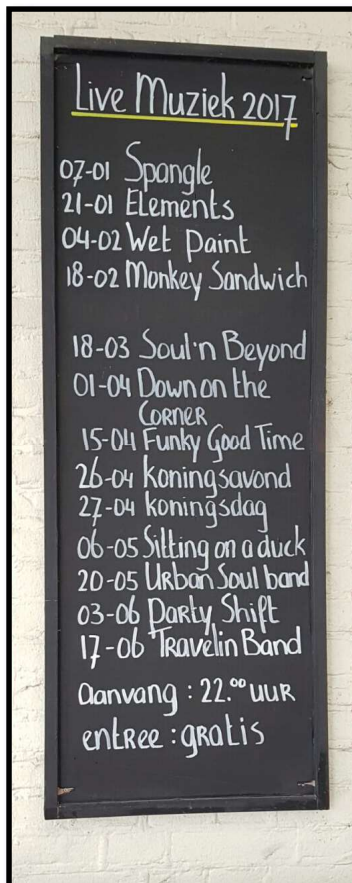 Live Muziek 2017
07-01 Spangle
21-01 Elements
04-02 Wet Paint
18-02 Monkey Sandwich
18-03 Soul'n Beyond
01-04 Down on the
CORNER
15-04 Funky Good Time
26-04 koningsavond
27-04 koningsdag
06-05 Sitting on a duck
20-05 Urban Soul band
03-06 Party Shift
17-06 Travelin Band
aanvang : 22.00 uur
entree : gratis